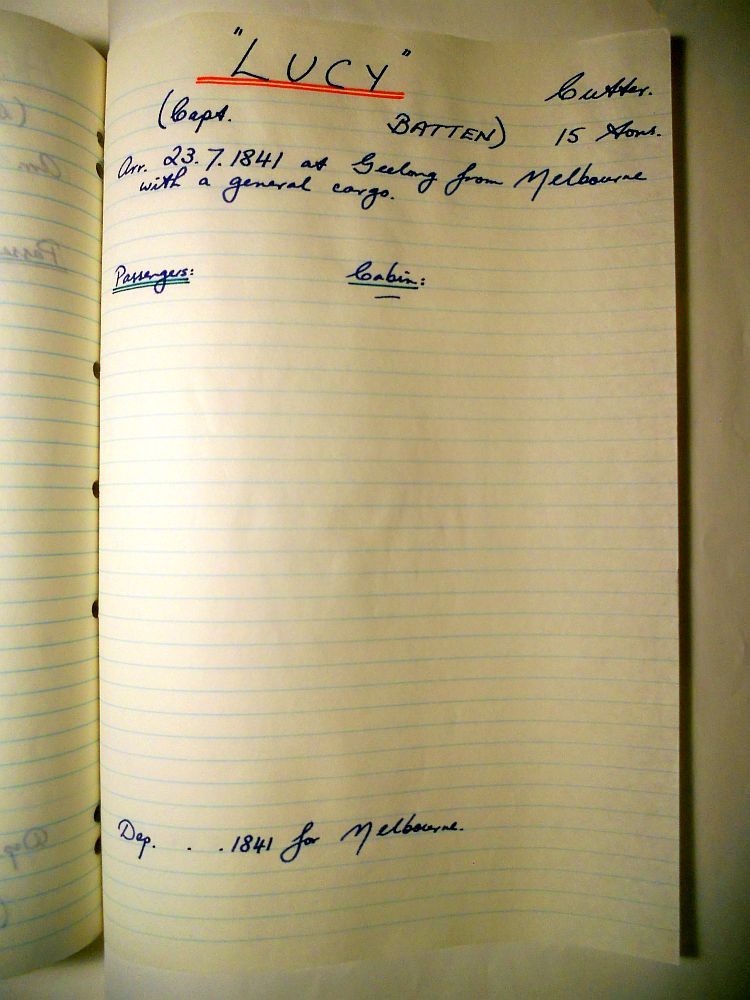 "LUCY"
Cutter.
(Capt. BATTEN) 15 tons.
Arr. 23.7.1841 at Geelong from Melbourne
with a general cargo.
Passengers: Cabin:
—
Dep. . .1841 for Melbourne.